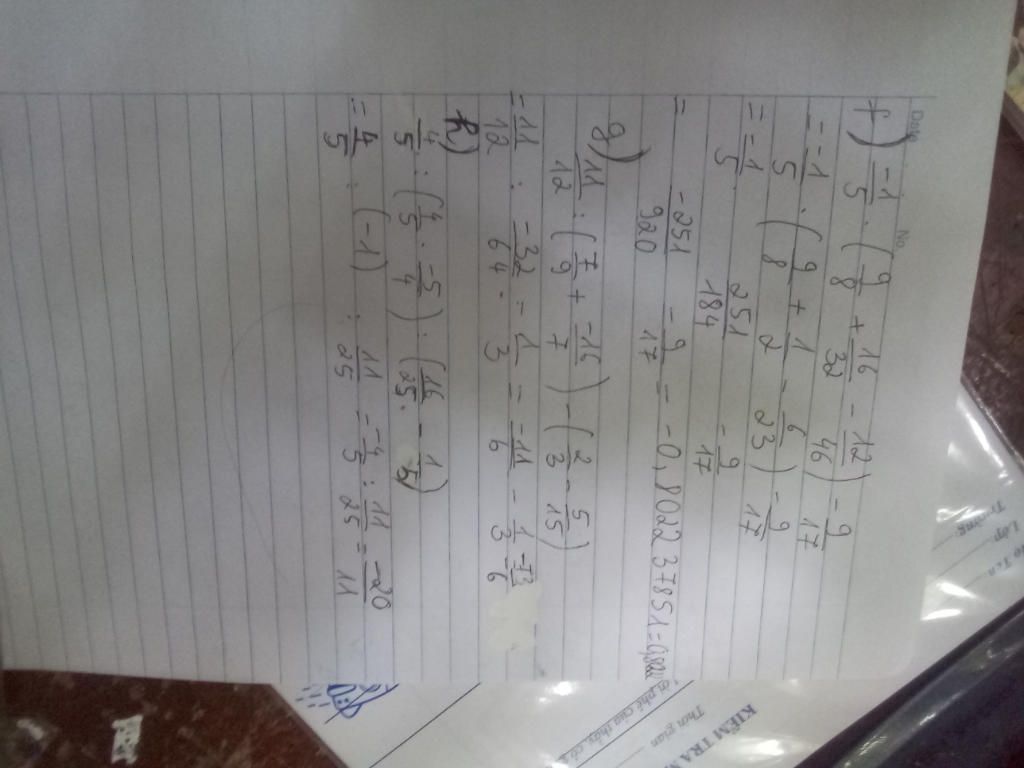 Date No.
f) -1/5 . (9/8 + 16/32 - 12/46) - 9/17
= -1/5 . (9/8 + 1/2 - 6/23) - 9/17
= -1/5 . 251/184 - 9/17
= -251/920 - 9/17 = -0,8022 37851 =
g) 11/12 : (7/9 + -16/7) - (2/3 - 5/15)
= 11/12 : -32/64 - 1/3 = -11/6 - 1/3
h) 4/5 : (4/5 . -5/4) : (16/25 - 1/5)
= 4/5 : (-1) : 11/25 = -4/5 : 11/25 = -20/11
Trường
Lớp
KIỂM TRA
Thời gian
Lời phê của thầy, cô